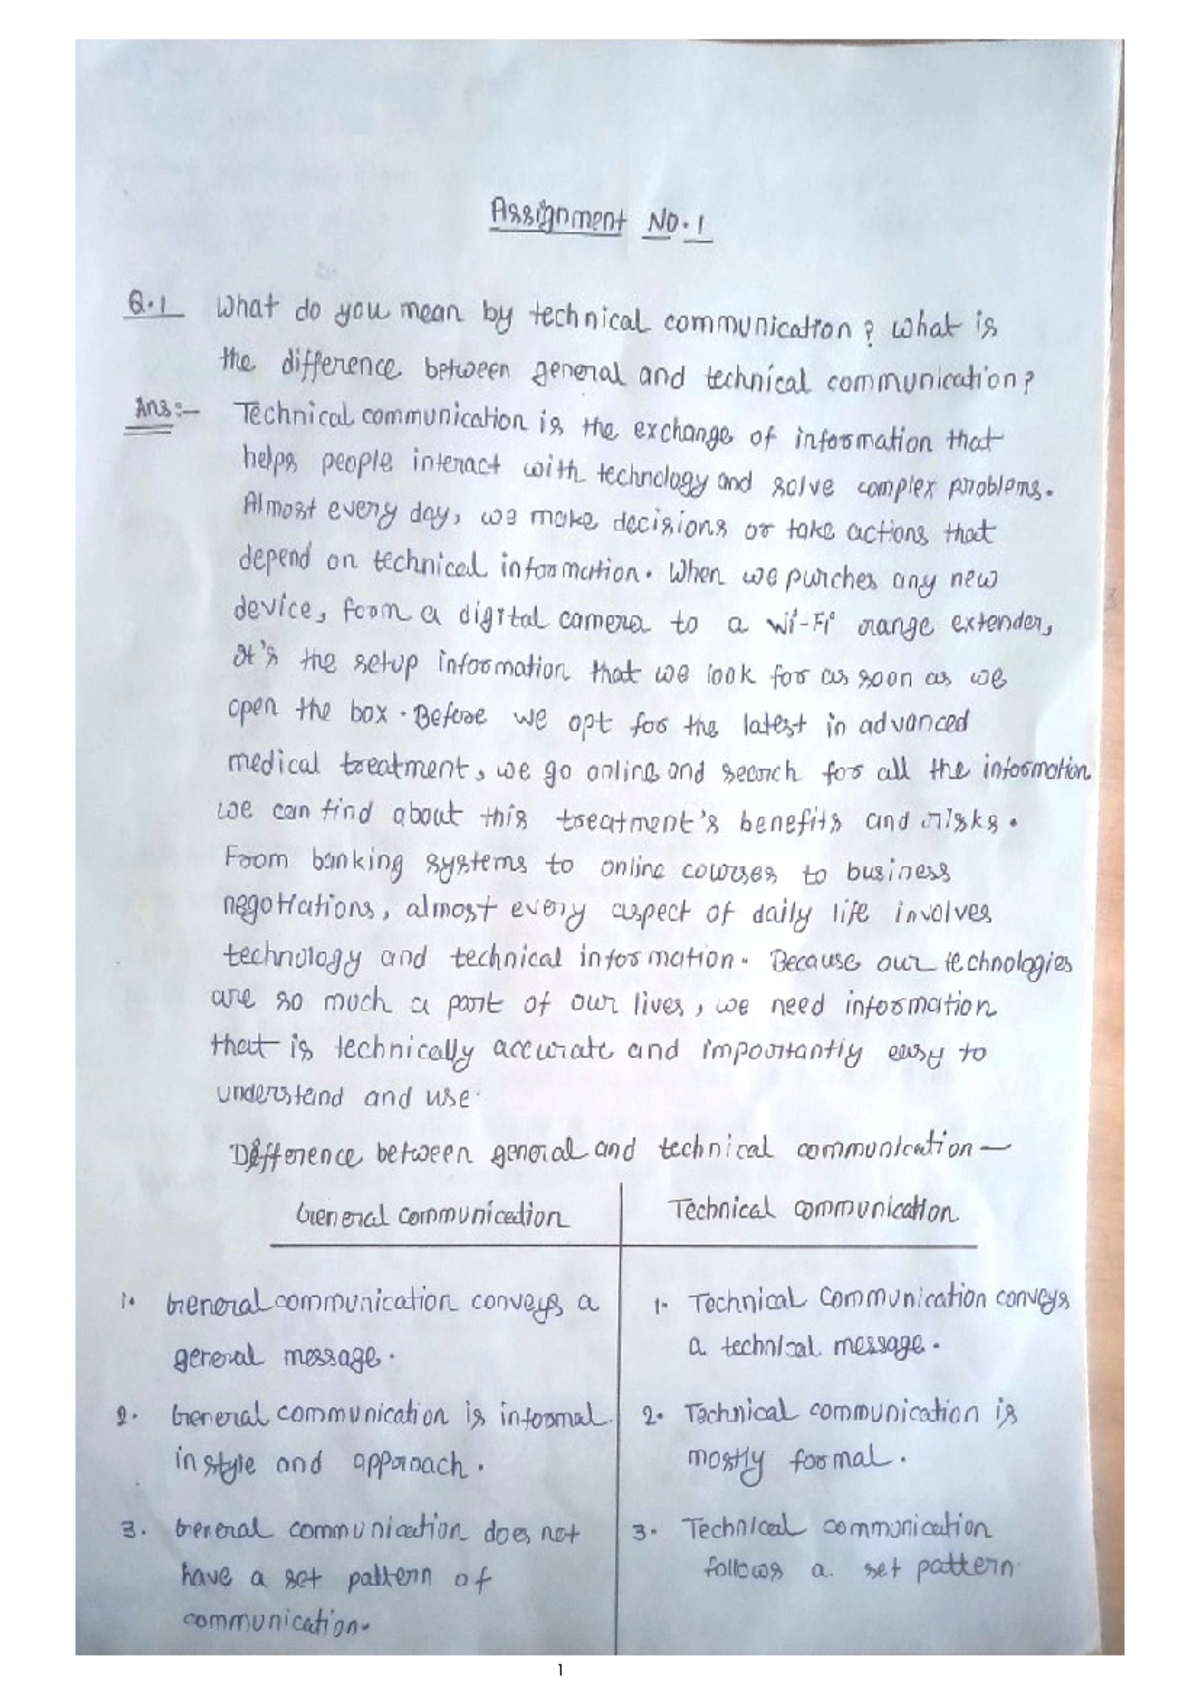 Assignment No.1
Q.1 What do you mean by technical communication? What is
the difference between general and technical communication?
Ans:- Technical communication is the exchange of information that
helps people interact with technology and solve complex problems.
Almost every day, we make decisions or take actions that
depend on technical information. When we purches any new
device, from a digital camera to a Wi-Fi range extender,
It's the setup information that we look for as soon as we
open the box. Before we opt for the latest in advanced
medical treatment, we go online and search for all the information
we can find about this treatment's benefits and risks.
From banking systems to online courses to business
negotiations, almost every aspect of daily life involves
technology and technical information. Because our technologies
are so much a part of our lives, we need information
that is technically accurate and importantly easy to
understand and use.
Difference between general and technical communication —
General communication Technical communication
1. General communication conveys a 1. Technical Communication conveys
general message. a technical message.
2. General communication is informal 2. Technical communication is
in style and approach. mostly formal.
3. General communication does not 3. Technical communication
have a set pattern of follows a set pattern.
communication.
1